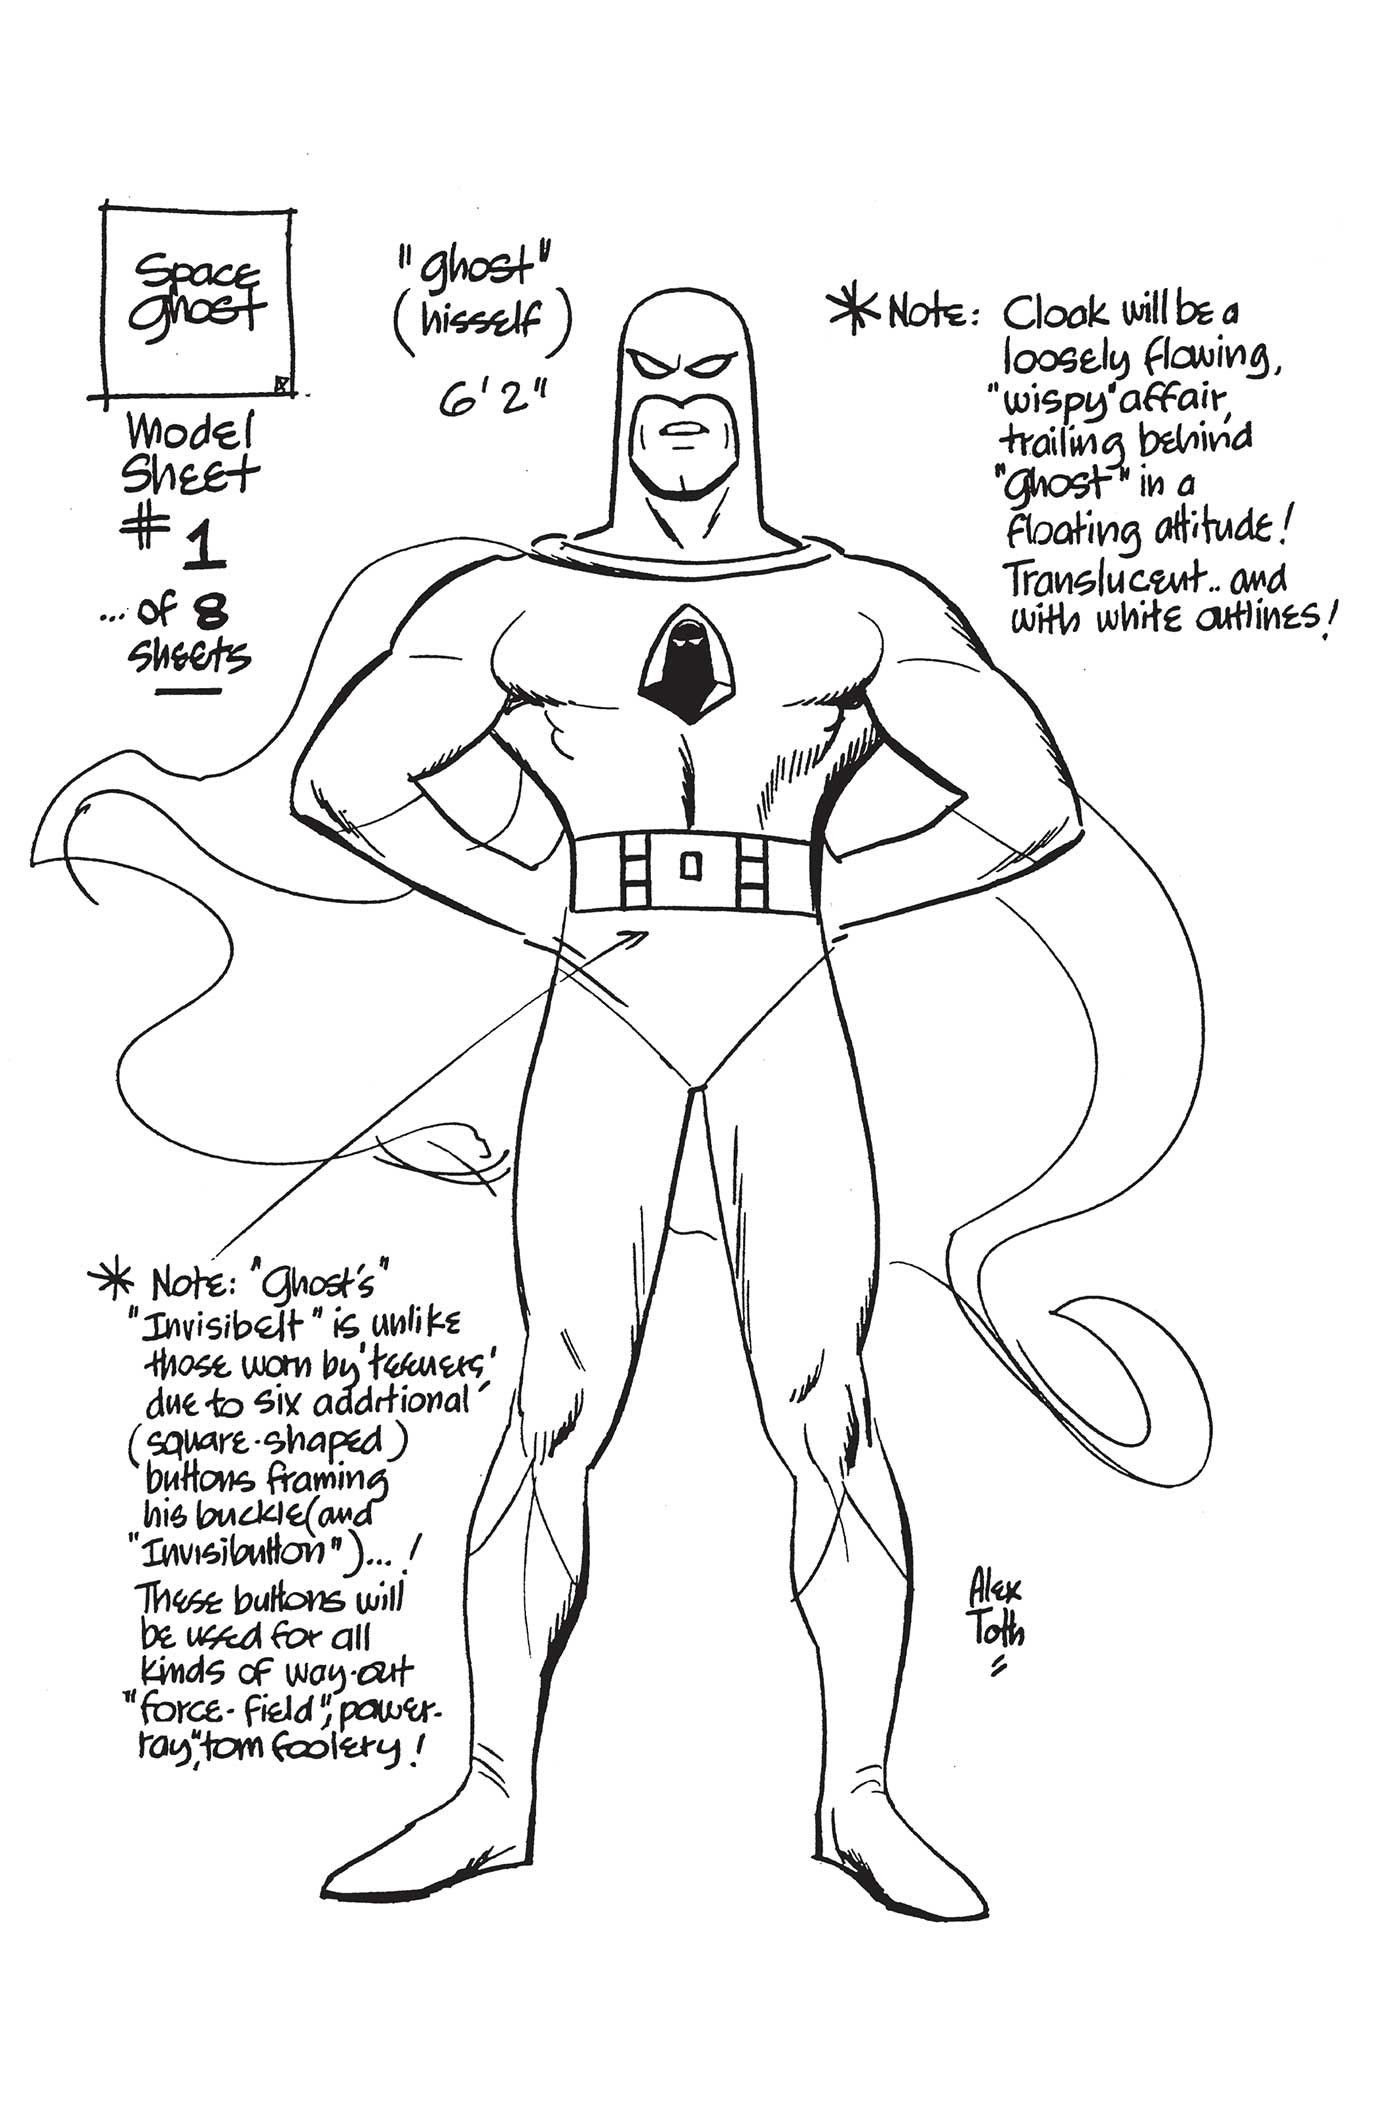 Space
Ghost
Model
Sheet
# 1
... of 8
sheets
"Ghost"
(hisself)
6'2"
* Note: Cloak will be a
loosely flowing,
"wispy" affair,
trailing behind
"Ghost" in a
floating attitude!
Translucent.. and
with white outlines!
* Note: "Ghost's"
"Invisibelt" is unlike
those worn by 'teeners',
due to six additional
(square-shaped)
buttons framing
his buckle (and
"Invisibutton")...!
These buttons will
be used for all
kinds of way-out
"force-field", power-
ray", tom foolery!
Alex
Toth